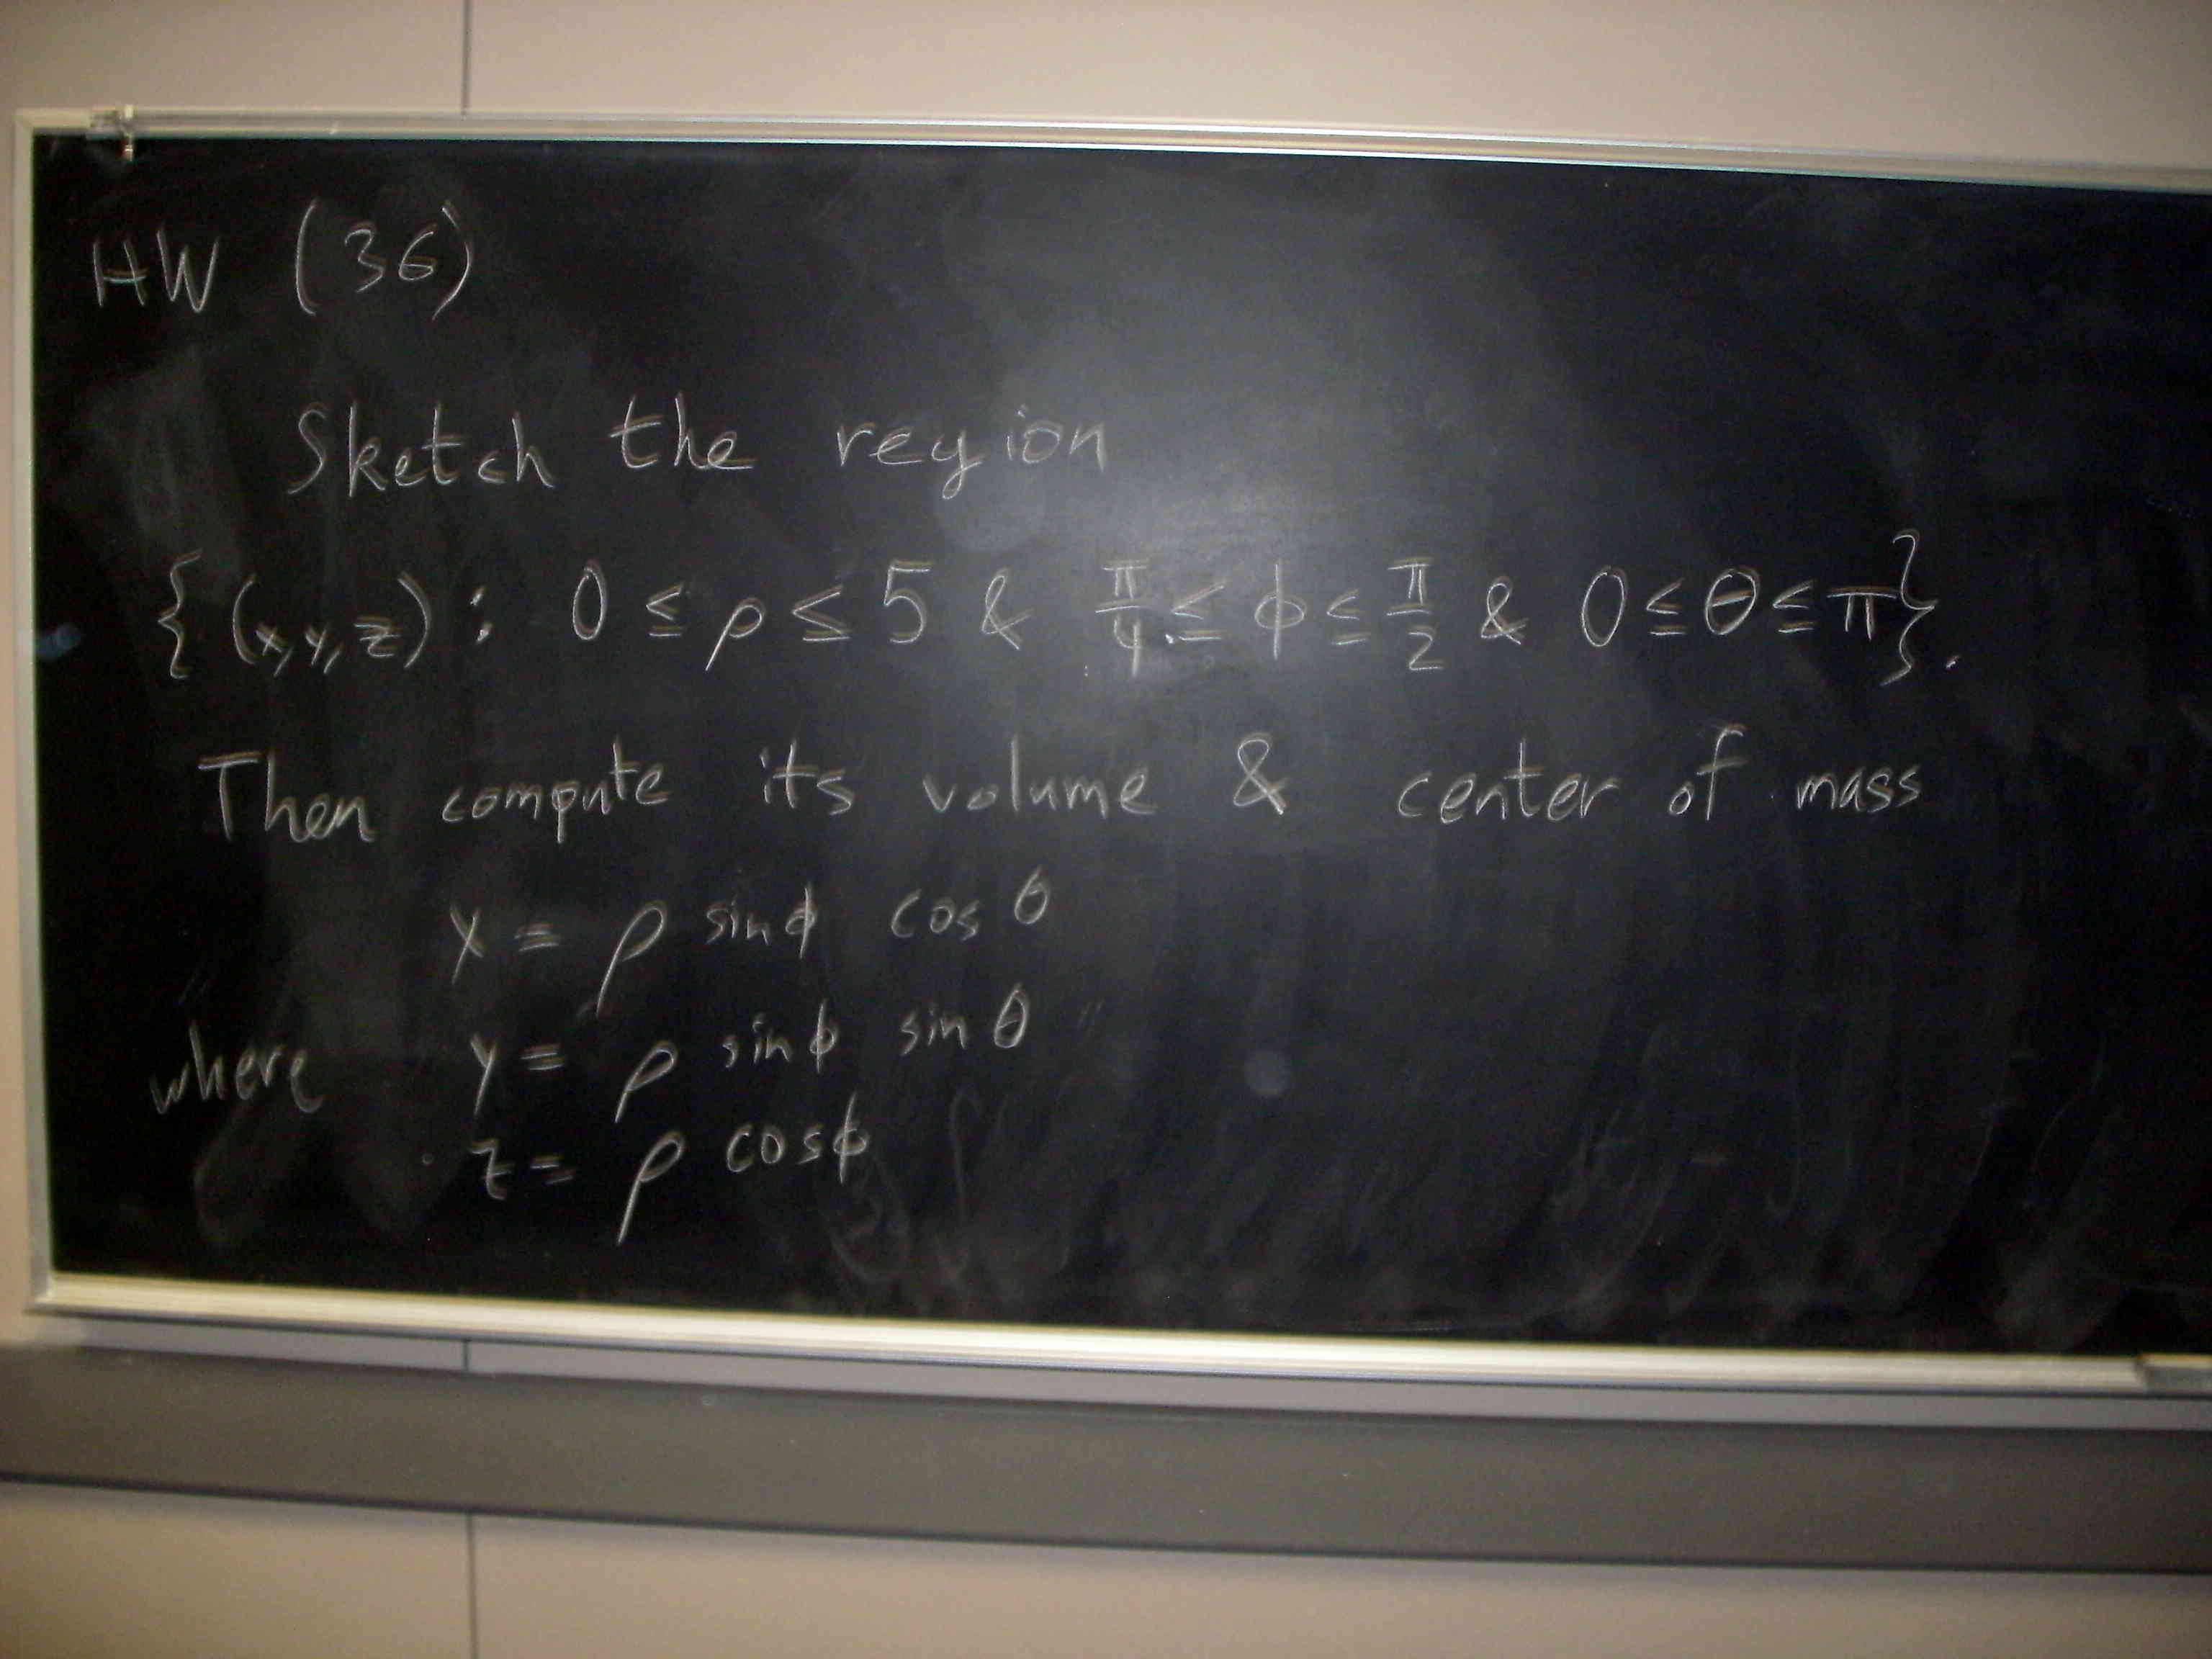 HW (36)
Sketch the region
{(x,y,z) : 0 ≤ ρ ≤ 5 & π/4 ≤ ϕ ≤ π/2 & 0 ≤ θ ≤ π}.
Then compute its volume & center of mass
x = ρ sinϕ cos θ
where y = ρ sinϕ sin θ
z = ρ cosϕ